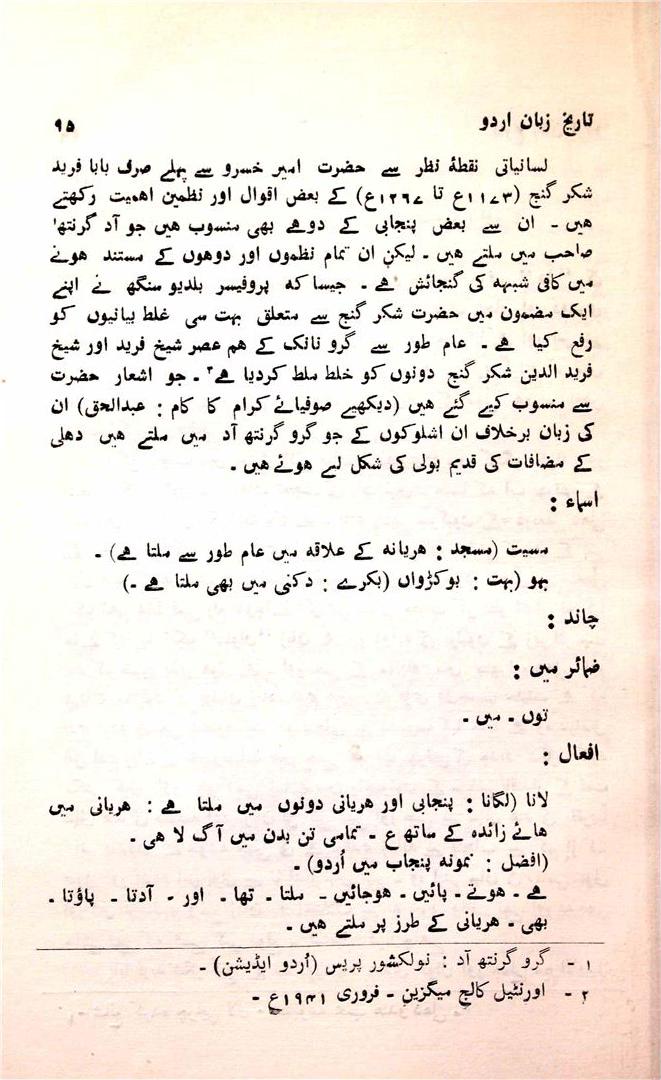 تاریخ زبان اردو
۹۵
لسانیاتی نقطۂ نظر سے حضرت امیر خسرو سے پہلے صرف بابا فرید
شکر گنج (۱۱۷۳ع تا ۱۲۶۷ع) کے بعض اقوال اور نظمیں اہمیت رکھتے
ہیں ۔ ان سے بعض پنجابی کے دوہے بھی منسوب ہیں جو آد گرنتھ¹
صاحب میں ملتے ہیں ۔ لیکن ان تمام نظموں اور دوہوں کے مستند ہونے
میں کافی شبہہ کی گنجائش ہے ۔ جیسا کہ پروفیسر بلدیو سنگھ نے اپنے
ایک مضمون میں حضرت شکر گنج سے متعلق بہت سی غلط بیانیوں کو
رفع کیا ہے ۔ عام طور سے گرو نانک کے ہم عصر شیخ فرید اور شیخ
فرید الدین شکر گنج دونوں کو خلط ملط کردیا ہے² ۔ جو اشعار حضرت
سے منسوب کیے گئے ہیں (دیکھیے صوفیائے کرام کا کام : عبدالحق) ان
کی زبان برخلاف ان اشلوکوں کے جو گرو گرنتھ آد میں ملتے ہیں دہلی
کے مضافات کی قدیم بولی کی شکل لیے ہوئے ہیں ۔
اسماء :
مسیت (مسجد : ہریانہ کے علاقہ میں عام طور سے ملتا ہے) ۔
بہو (بہت : بوکڑواں (بکرے : دکنی میں بھی ملتا ہے ۔)
چاند :
ضمائر میں :
توں ۔ میں ۔
افعال :
لانا (لگانا : پنجابی اور ہریانی دونوں میں ملتا ہے : ہریانی میں
ہائے زائدہ کے ساتھ ع ۔ تمامی تن بدن میں آگ لا ہی ۔
(افضل : نمونہ پنجاب میں اُردو) ۔
ہے ۔ ہوتے ۔ پائیں ۔ ہوجائیں ۔ ملتا ۔ تھا ۔ اور ۔ آدتا ۔ پاؤتا ۔
بھی ۔ ہریانی کے طرز پر ملتے ہیں ۔
۱ ۔ گرو گرنتھ آد : نولکشور پریس (اُردو ایڈیشن) ۔
۲ ۔ اورنٹیل کالج میگزین ۔ فروری ۱۹۴۱ع ۔